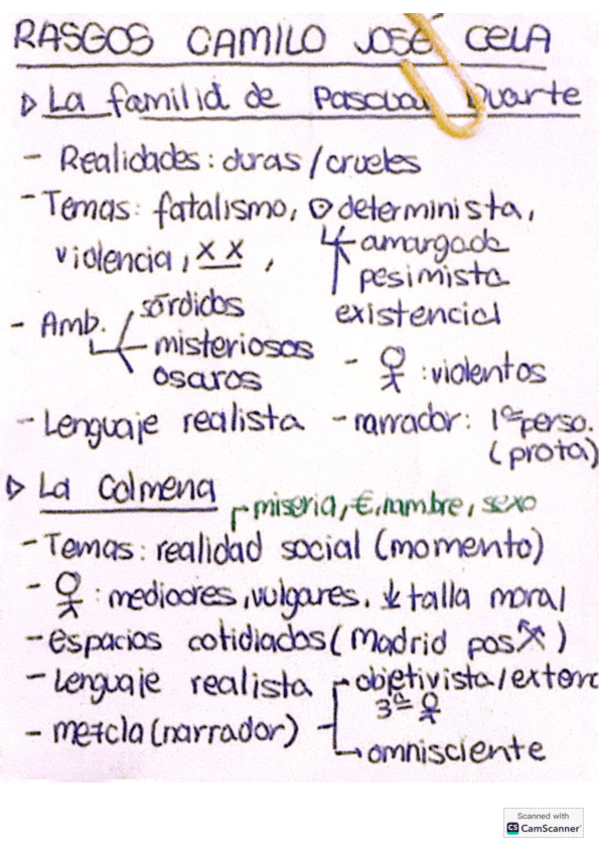 RASGOS CAMILO JOSÉ CELA
▷ La familia de Pascual Duarte
- Realidades: duras/crueles
- Temas: fatalismo, determinista,
violencia, x x , amargada
pesimista
existencial
- Amb. sórdidos
misteriosos
oscuros
- : violentos
- Lenguaje realista - narrador: 1ª perso.
(prota)
▷ La Colmena
miseria, €, hambre, sexo
- Temas: realidad social (momento)
- : mediocres, vulgares, ↓ talla moral
- espacios cotidiados (Madrid pos )
- Lenguaje realista
- mezcla (narrador) objetivista/extern
3ª
omnisciente
Scanned with
CS CamScanner